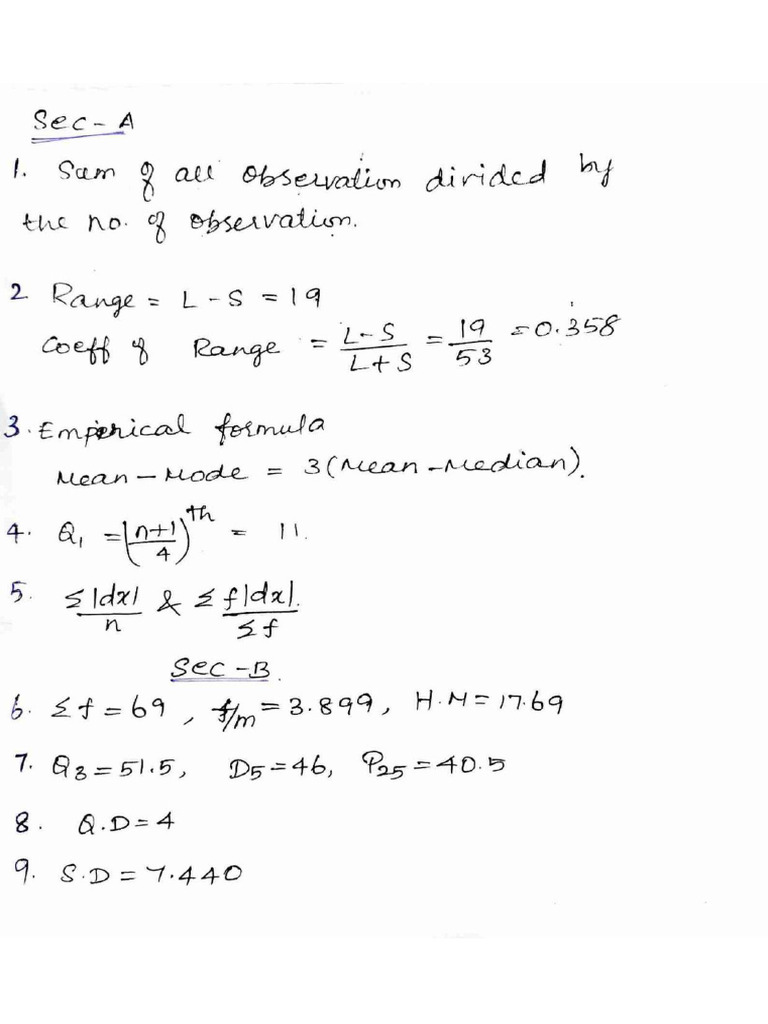 Sec - A
1. Sum of all observation divided by
the no. of observation.
2 Range = L - S = 19
Coeff of Range = L-S/L+S = 19/53 = 0.358
3. Emperical formula
Mean - Mode = 3(Mean - Median).
4. Q₁ = (n+1/4)th = 11.
5. Σ|dx|/n & Σf|dx|./Σf
Sec - B.
6. Σf = 69, f/m = 3.899, H.M = 17.69
7. Q3 = 51.5, D5 = 46, P25 = 40.5
8. Q.D = 4
9. S.D = 7.440